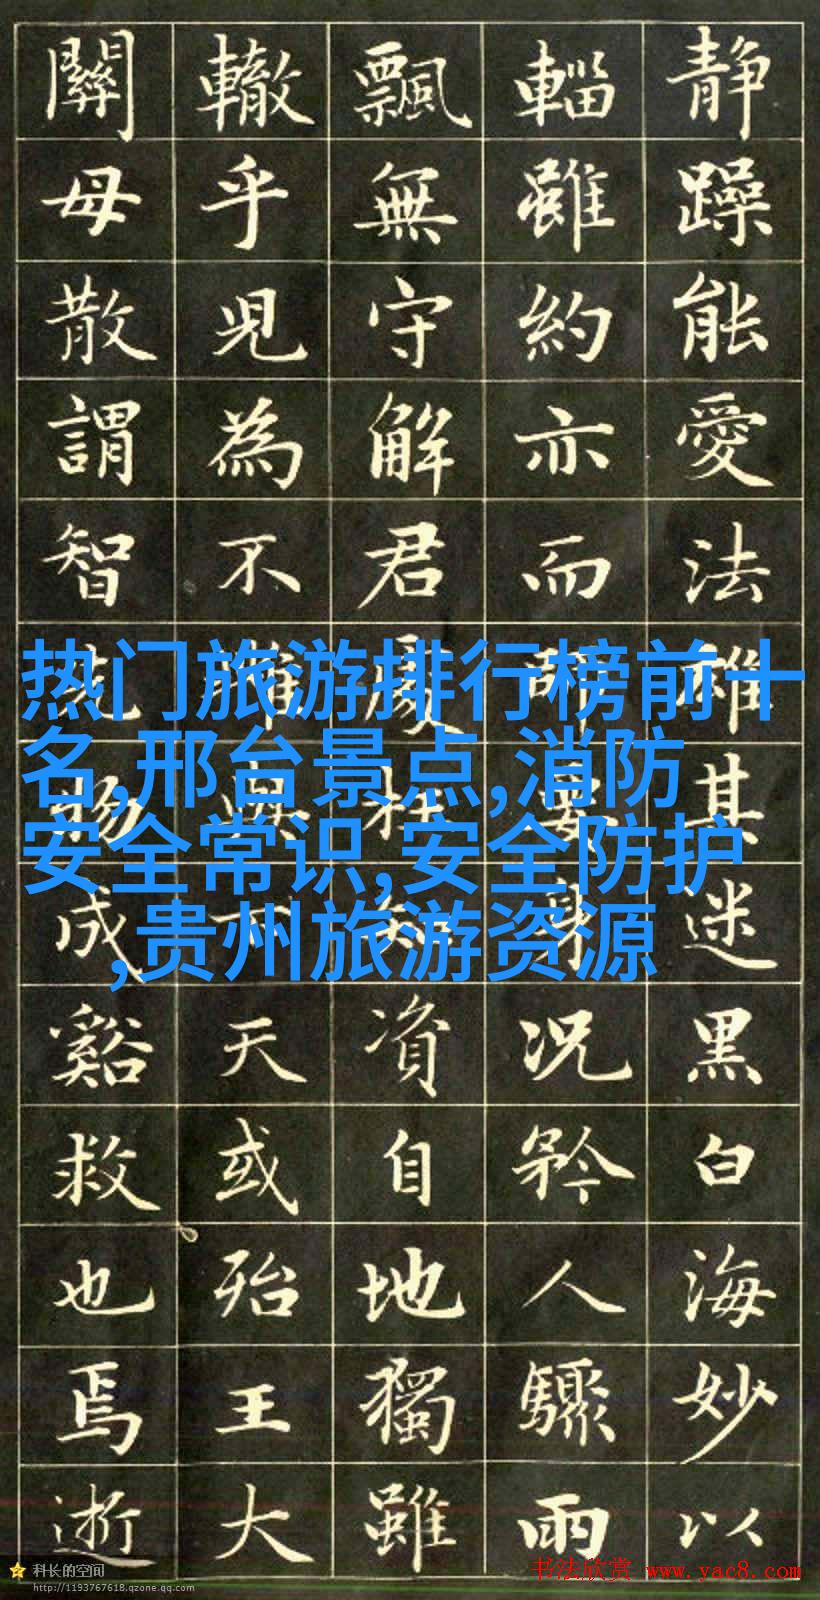 静躁能愛法其迷黑白海妙以
輜雖約亦而身况矜人驟雨
飄無守解君處知資自地獨雖
轍乎児為不天或殆王大
關毋散謂智物成谿救也焉逝
热门旅游排行榜前十
名,邢台景点,消防
安全常识,安全防护
,贵州旅游资源
科长的空间
http://1193767618.qzone.qq.com
书法欣赏 www.yac8.com